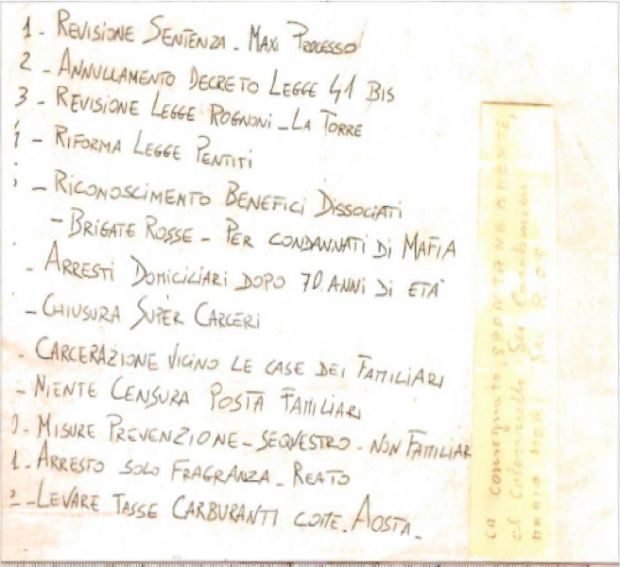 1 - REVISIONE SENTENZA - MAXI PROCESSO
2 - ANNULLAMENTO DECRETO LEGGE 41 BIS
3 - REVISIONE LEGGE ROGNONI - LA TORRE
- RIFORMA LEGGE PENTITI
- RICONOSCIMENTO BENEFICI DISSOCIATI
- BRIGATE ROSSE - PER CONDANNATI DI MAFIA
- ARRESTI DOMICILIARI DOPO 70 ANNI DI ETA'
- CHIUSURA SUPER CARCERI
- CARCERAZIONE VICINO LE CASE DEI FAMILIARI
- NIENTE CENSURA POSTA FAMILIARI
- MISURE PREVENZIONE - SEQUESTRO - NON FAMILIAR
1 - ARRESTO SOLO FRAGRANZA - REATO
2 - LEVARE TASSE CARBURANTI COME AOSTA -
consegnato, SPONTANEAMENTE,
al Colonnello dei Carabinieri
MARIO MORI del ROS